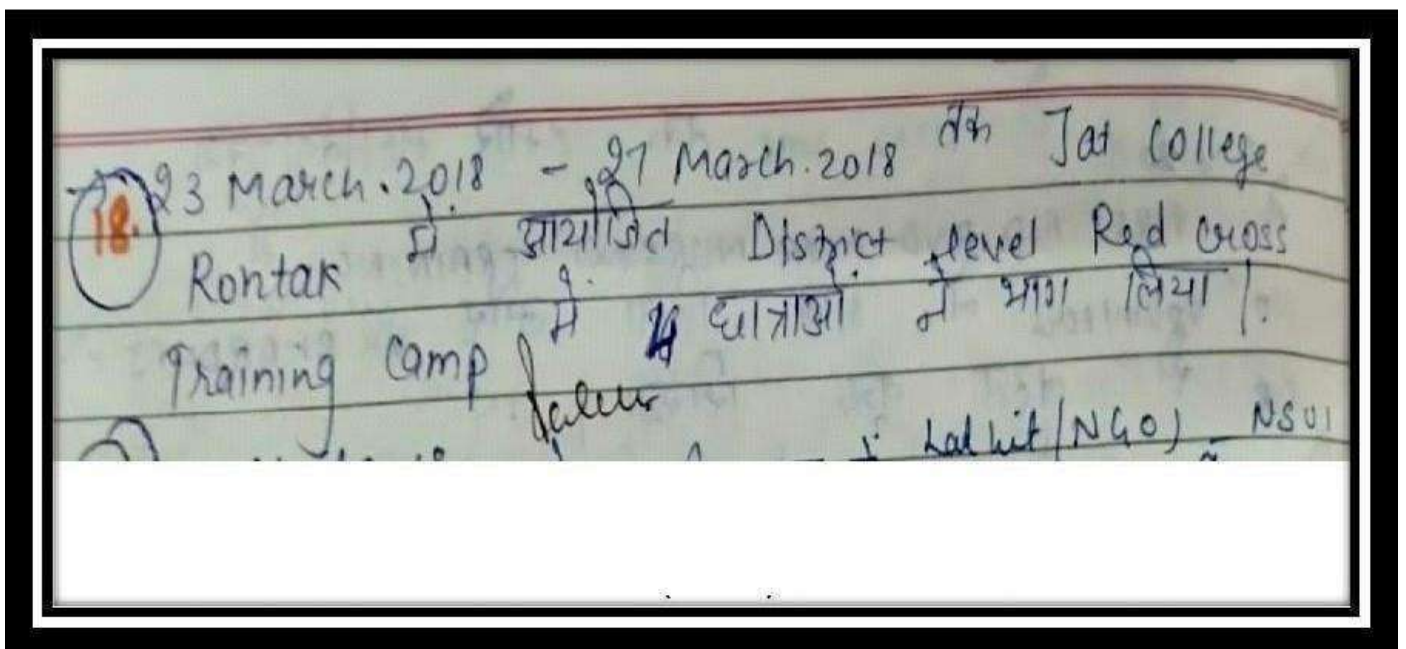 18. 23 March.2018 - 27 March.2018 तक Jat College
Rontak में आयोजित District level Red Cross
Training Camp में 4 छात्राओं ने भाग लिया।
(NGO) NSUI